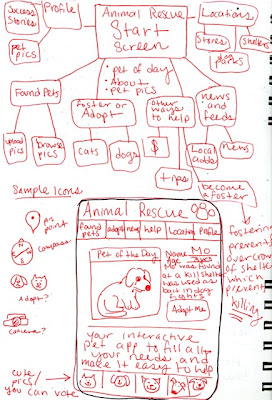 Success
Stories
Profile
pet
pics
Animal Rescue
Start
Screen
• pet of day
• About
• pet pics
Locations
Stores
Shelters
parks
Found Pets
upload
pics
browse
pics
Foster or
Adopt
cats
dogs
other
ways to
help
$
trips
news
and
feeds
Local
news
become
a foster
fostering
prevents
of shelters
which
prevents
killing
Sample Icons
pin
point
compass
Adopt?
camera?
cute
pics/
you can vote
Animal Rescue
found
pets
adopt
news
help
Location
Profile
Pet of the Day
Name Mo
age
Mo was found
at a kill shelter
was used as
bait in dog
fights
Adopt Me
your interactive
pet app to fill all
your needs and
make it easy to help